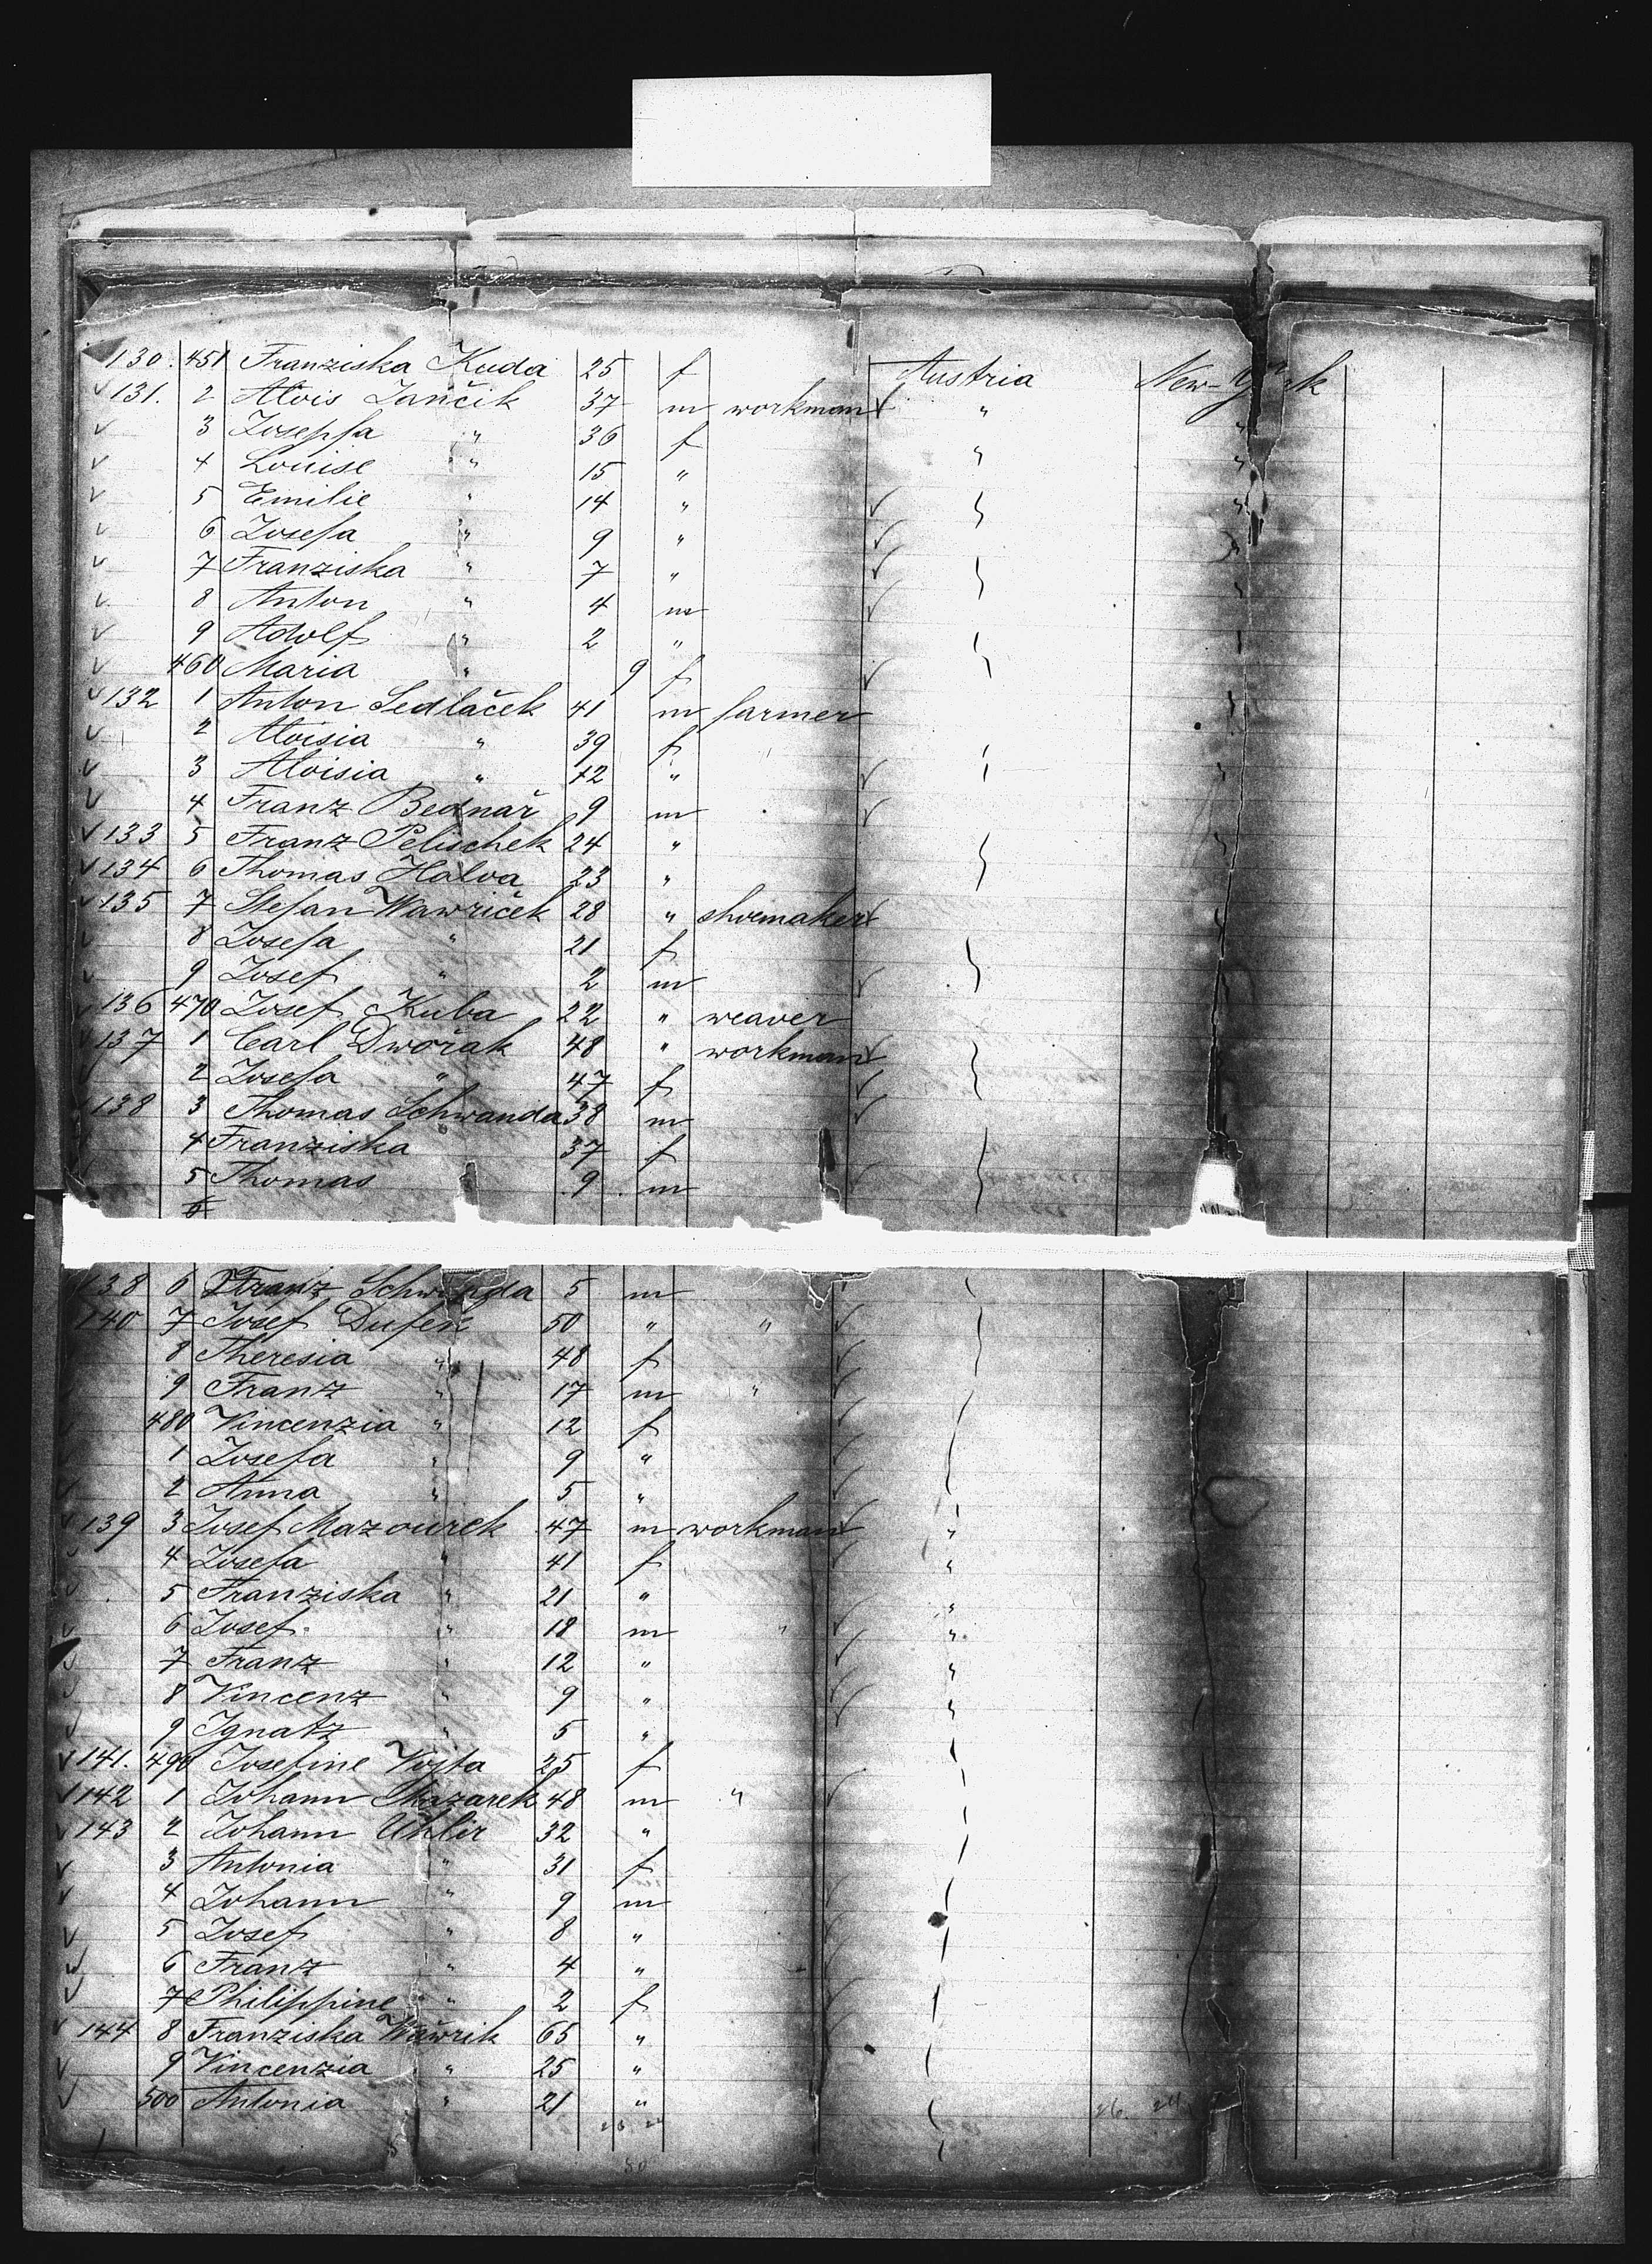 130. 451 Franziska Kuda 25 f Austria New-York
131. 2 Alois Jančik 37 m workman "
3 Josepfa " 36 f " "
4 Louise " 15 " "
5 Emilie " 14 " "
6 Josefa " 9 "
7 Franziska " 7 "
8 Anton " 4 m
9 Adolf " 2 "
460 Maria " 9 f
132 1 Anton Sedlaček 41 m farmer
2 Aloisia " 39 f
3 Aloisia " 12 "
4 Franz Bednař 9 m
133 5 Franz Pelischek 24 "
134 6 Thomas Halva 23 "
135 7 Stefan Wawriček 28 " shoemaker
8 Josefa " 21 f
9 Josef " 2 m
136 470 Josef Kuba 22 " weaver
137 1 Carl Dwořak 48 " workman
2 Josefa " 47 f
138 3 Thomas Schwanda 38 m
4 Franziska 37 f
5 Thomas 9 m
6
138 6 Franz Schwanda 5 m
140 7 Josef Dufek 50 " "
8 Theresia " 48 f
9 Franz " 17 m "
480 Vincenzia " 12 f
1 Josefa " 9 "
2 Anna " 5 "
139 3 Josef Mazourek 47 m workman "
4 Josefa " 41 f "
5 Franziska " 21 " "
6 Josef " 18 m " "
7 Franz " 12 " "
8 Vincenz " 9 " "
9 Ignatz " 5 "
141. 490 Josefine Vojta 25 f
142 1 Johann Mazarek 48 m "
143 2 Johann Uhlir 32 "
3 Antonia " 31 f
4 Johann " 9 m
5 Josef " 8 "
6 Franz " 4 "
7 Philippine " 2 f
144 8 Franziska Wawrik 65 "
9 Vincenzia " 25 "
500 Antonia " 21 "
26. 24
50